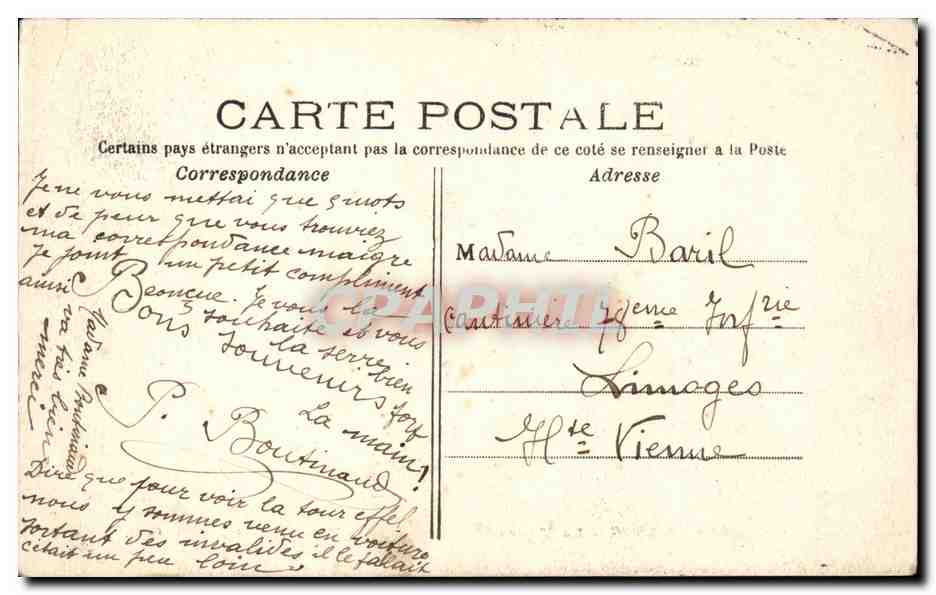 CARTE POSTALE
Certains pays étrangers n'acceptant pas la correspondance de ce coté se renseigner a la Poste
Correspondance
Je ne vous mettai que 5 mots
et de peur que vous trouviez
ma correspondance maigre
Je joint un petit compliment
Je vous la
souhaite et vous
la serre bien
fort
La main!
Bons souvenirs
P. Boutinaud
aussi
Madame Boutinaud
va très bien
merci
Dire que pour voir la tour effel
nous y sommes venu en voiture
sortant des invalides il le fallait
c'était un peu loin
Adresse
Madame Baril
Cantinière 78eme
Limoges
Hte Vienne
CPAPHIL